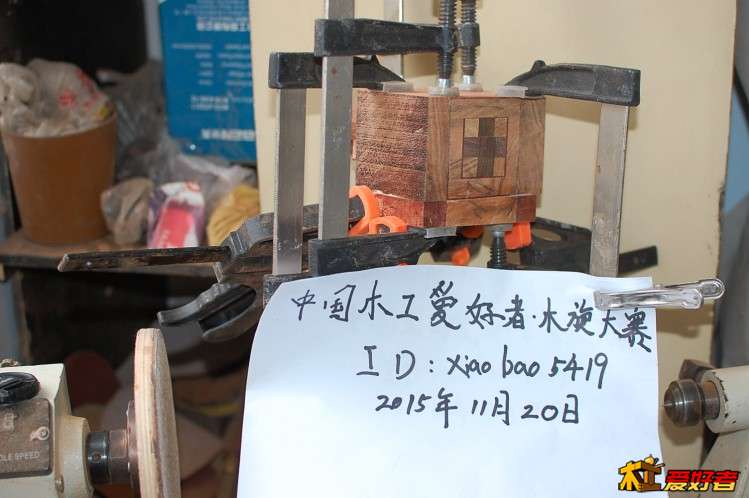 中国木工爱好者·木旋大赛
ID:xiaobao5419
2015年11月20日
LE SPEED
木工爱好者